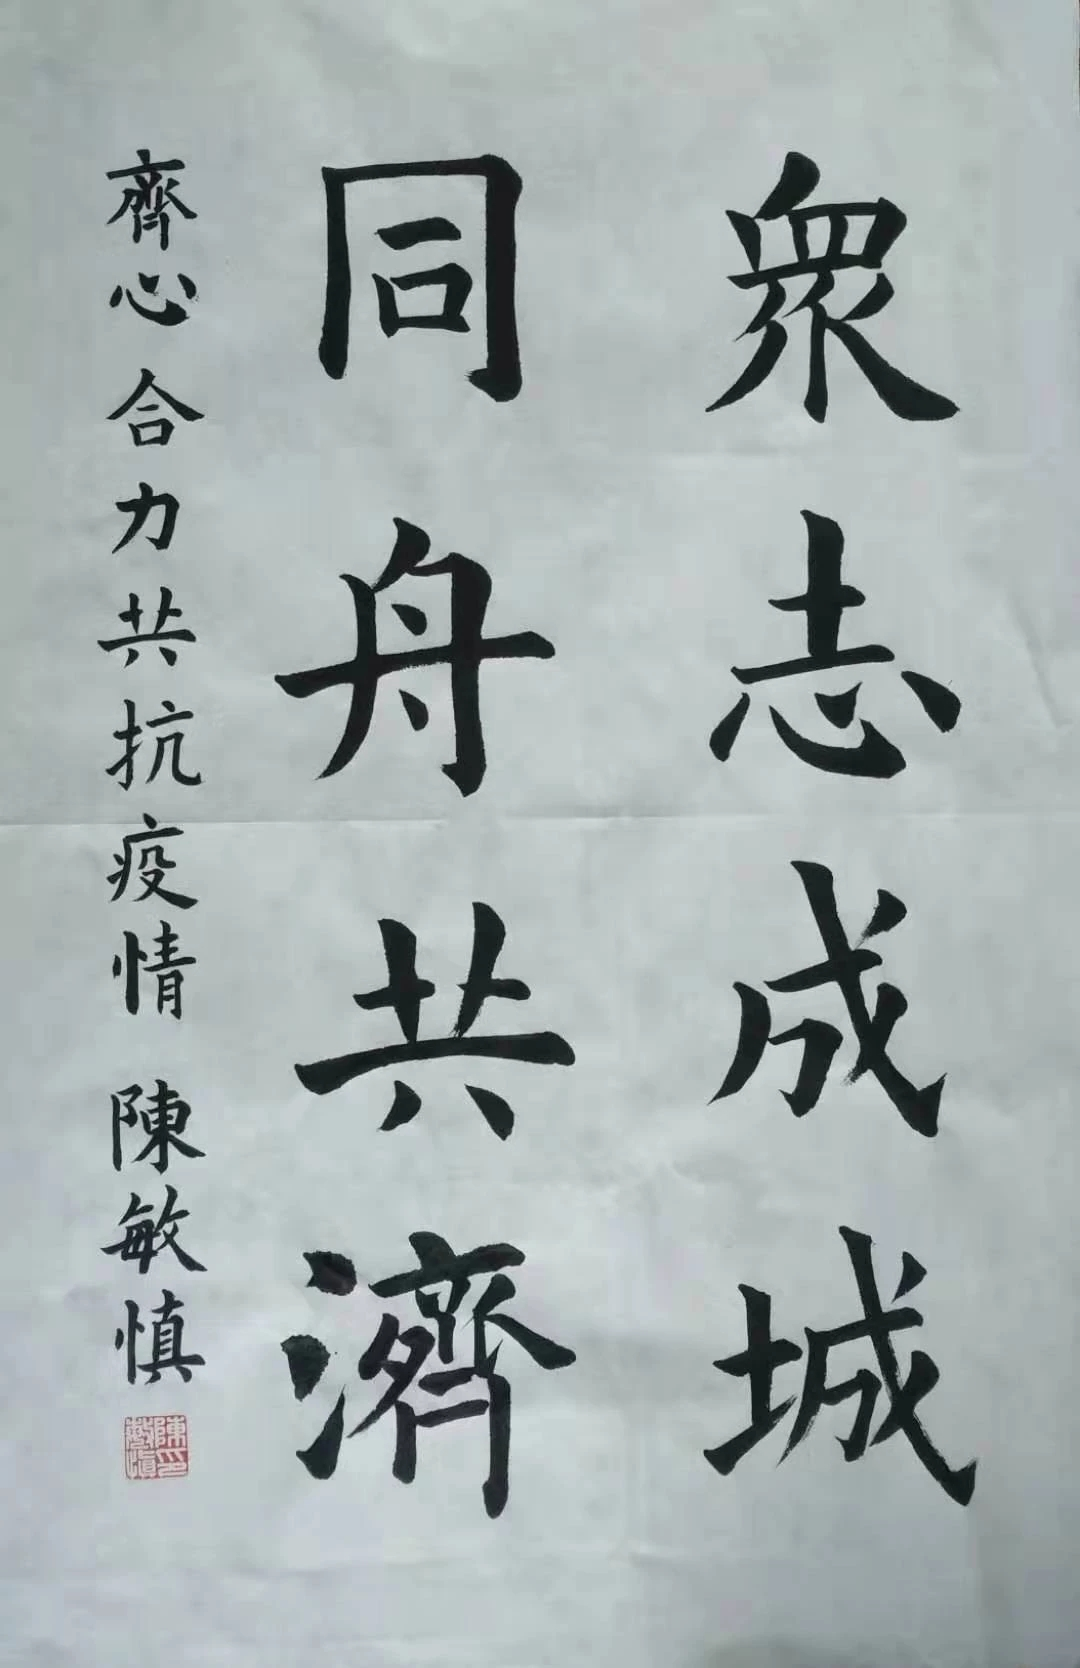 衆志成城
同舟共濟
齊心合力共抗疫情 陳敏慎
陳敏慎印